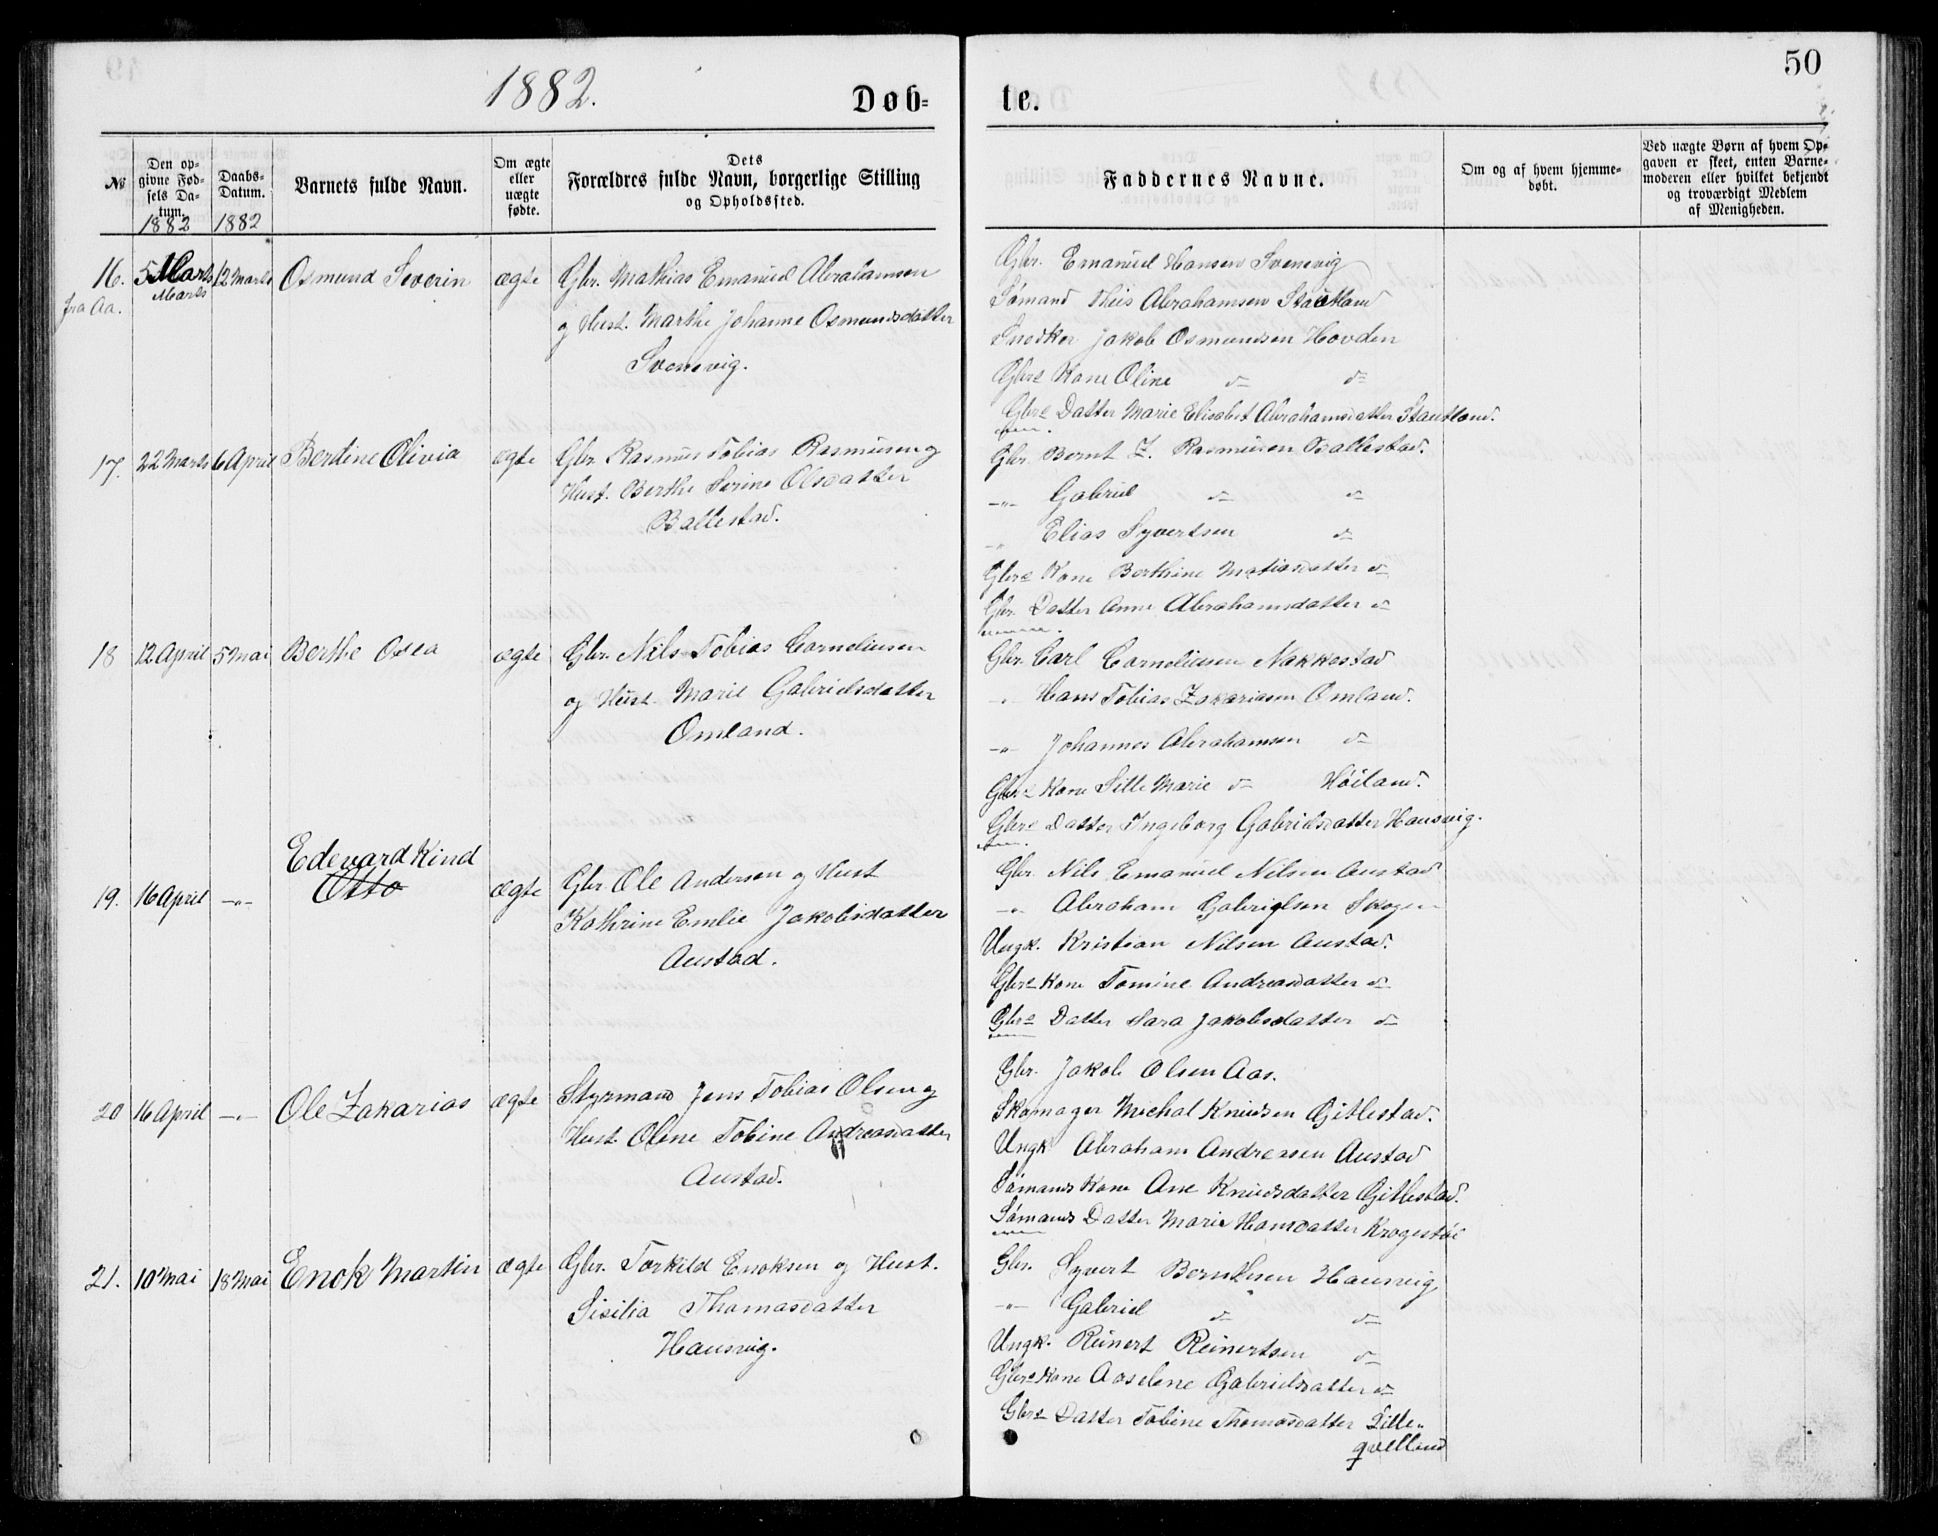 1882.
Døb=
te.
50
№
Den opgivne Fødsels Datum.
1882
Daabs-Datum.
1882
Barnets fulde Navn.
Om ægte eller uægte fødte.
Dets Forældres fulde Navn, borgerlige Stilling og Opholdssted.
Faddernes Navne.
Om og af hvem hjemmedøbt.
Ved uægte Børn af hvem Opgaven er skeet, enten Barnemoderen eller hvilket bekjendt og troværdigt Medlem af Menigheden.
16. 5 Marts 12 Marts Osmund Severin ægte Gbr. Mathias Emanuel Abrahamsen
fra Aa. Marts
og Hust. Marthe Johanne Osmundsdatter
Svenevig.
Gbr. Emanuel Hansen Svenevig
Sømand Theis Abrahamsen Stautland
Snedker Jakob Osmundsen Hovden
Gbrs Kone Oline do do
Gbrs Datter Marie Elisabet Abrahamsdatter Stautland.
17. 22 Marts 6 April Bentine Olivia ægte Gbr. Rasmus Tobias Rasmusen og
Hust. Berthe Serine Olsdatter
Ballestad.
Gbr. Bernt Z. Rasmusen Ballestad.
-"- Gabriel do do
" Elias Syvertsen do
Gbrs Kone Berthine Matiasdatter do
Gbr. Datter Anne Abrahamsdatter do
18 12 April 5 Mai Berthe Osea ægte Gbr. Nils Tobias Corneliusen
og Hust. Marie Gabrielsdatter
Omland.
Gbr. Carl Corneliusen Nakkestad
-"- Hans Tobias Zakariasen Omland.
-"- Johannes Abrahamsen do
Gbrs Kone Sille Marie do Höiland.
Gbrs Datter Ingeborg Gabrielsdatter Hausvig.
Edevard Kind
19. 16 April -"- Otto ægte Gbr. Ole Andersen og Hust
Kathrine Emlie Jakobsdatter
Austad.
Gbr. Nils Emanuel Nilsen Austad
-"- Abraham Gabrielsen Skogen
Ungk. Kristian Nilsen Austad.
Gbrs Kone Tomine Andreasdatter do
Gbrs Datter Sara Jakobsdatter do
20 16 April -"- Ole Zakarias ægte Styrmand Jens Tobias Olsen og
Hust. Olene Tobine Andreasdatter
Austad.
Gbr. Jakob Olsen Aas.
Skomager Michal Knudsen Gitlestad.
Ungk Abraham Andresen Austad
Sømands Kone Ane Knudsdatter Gitlestad.
Sømands Datter Marie Hansdatter Krogestöl
21. 10 Mai 18 Mai Enok Martin ægte Gbr. Torkild Enoksen og Hust.
Sisilia Thomasdatter
Hausvig.
Gbr. Syvert Berntsen Hausvig
-"- Gabriel do do
Ungk. Reinert Reinertsen do
Gbrs Kone Aaselene Gabrielsdatter do
Gbrs Datter Tobine Thomasdatter Lille-
qvelland